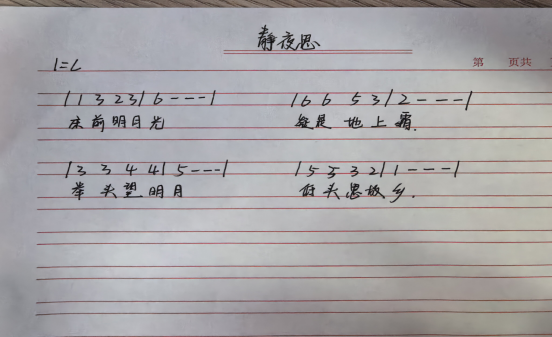 静夜思
1=C
第 页共
| 1 1 3 2 3 | 6 - - - | | 6 6 5 3 | 2 - - - |
床前明月光 疑是地上霜.
| 3 3 4 4 | 5 - - - | | 5 5 3 2 | 1 - - - |
举头望明月 低头思故乡.